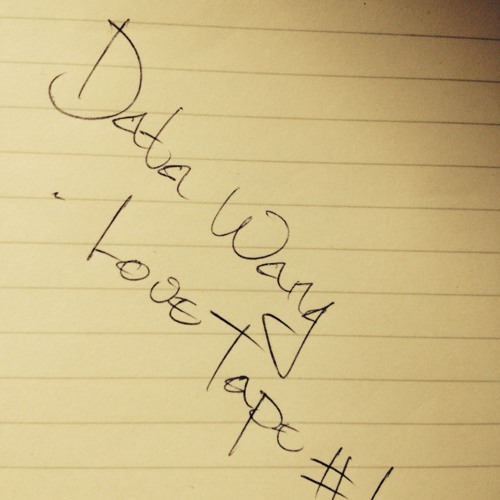 Data Wang
Love Tape #1